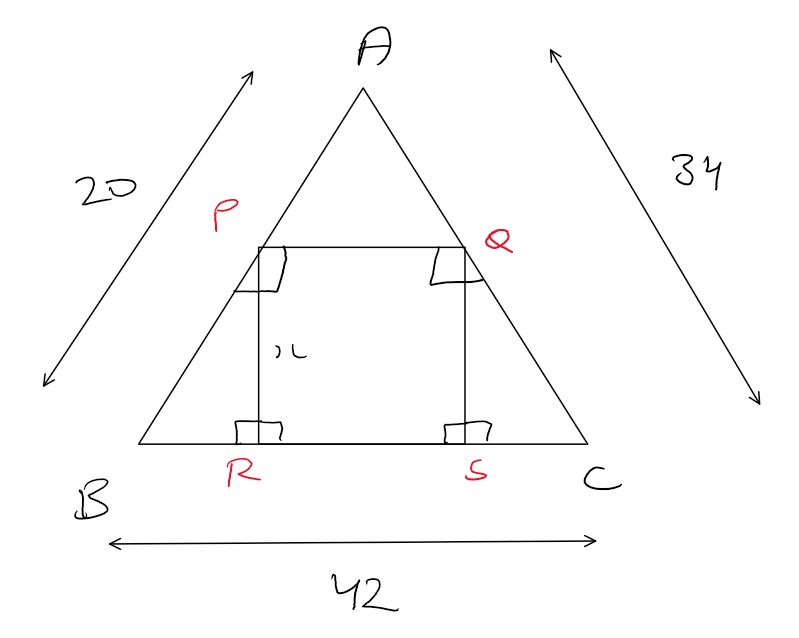 A
20
34
P
Q
x
R
S
B
C
42